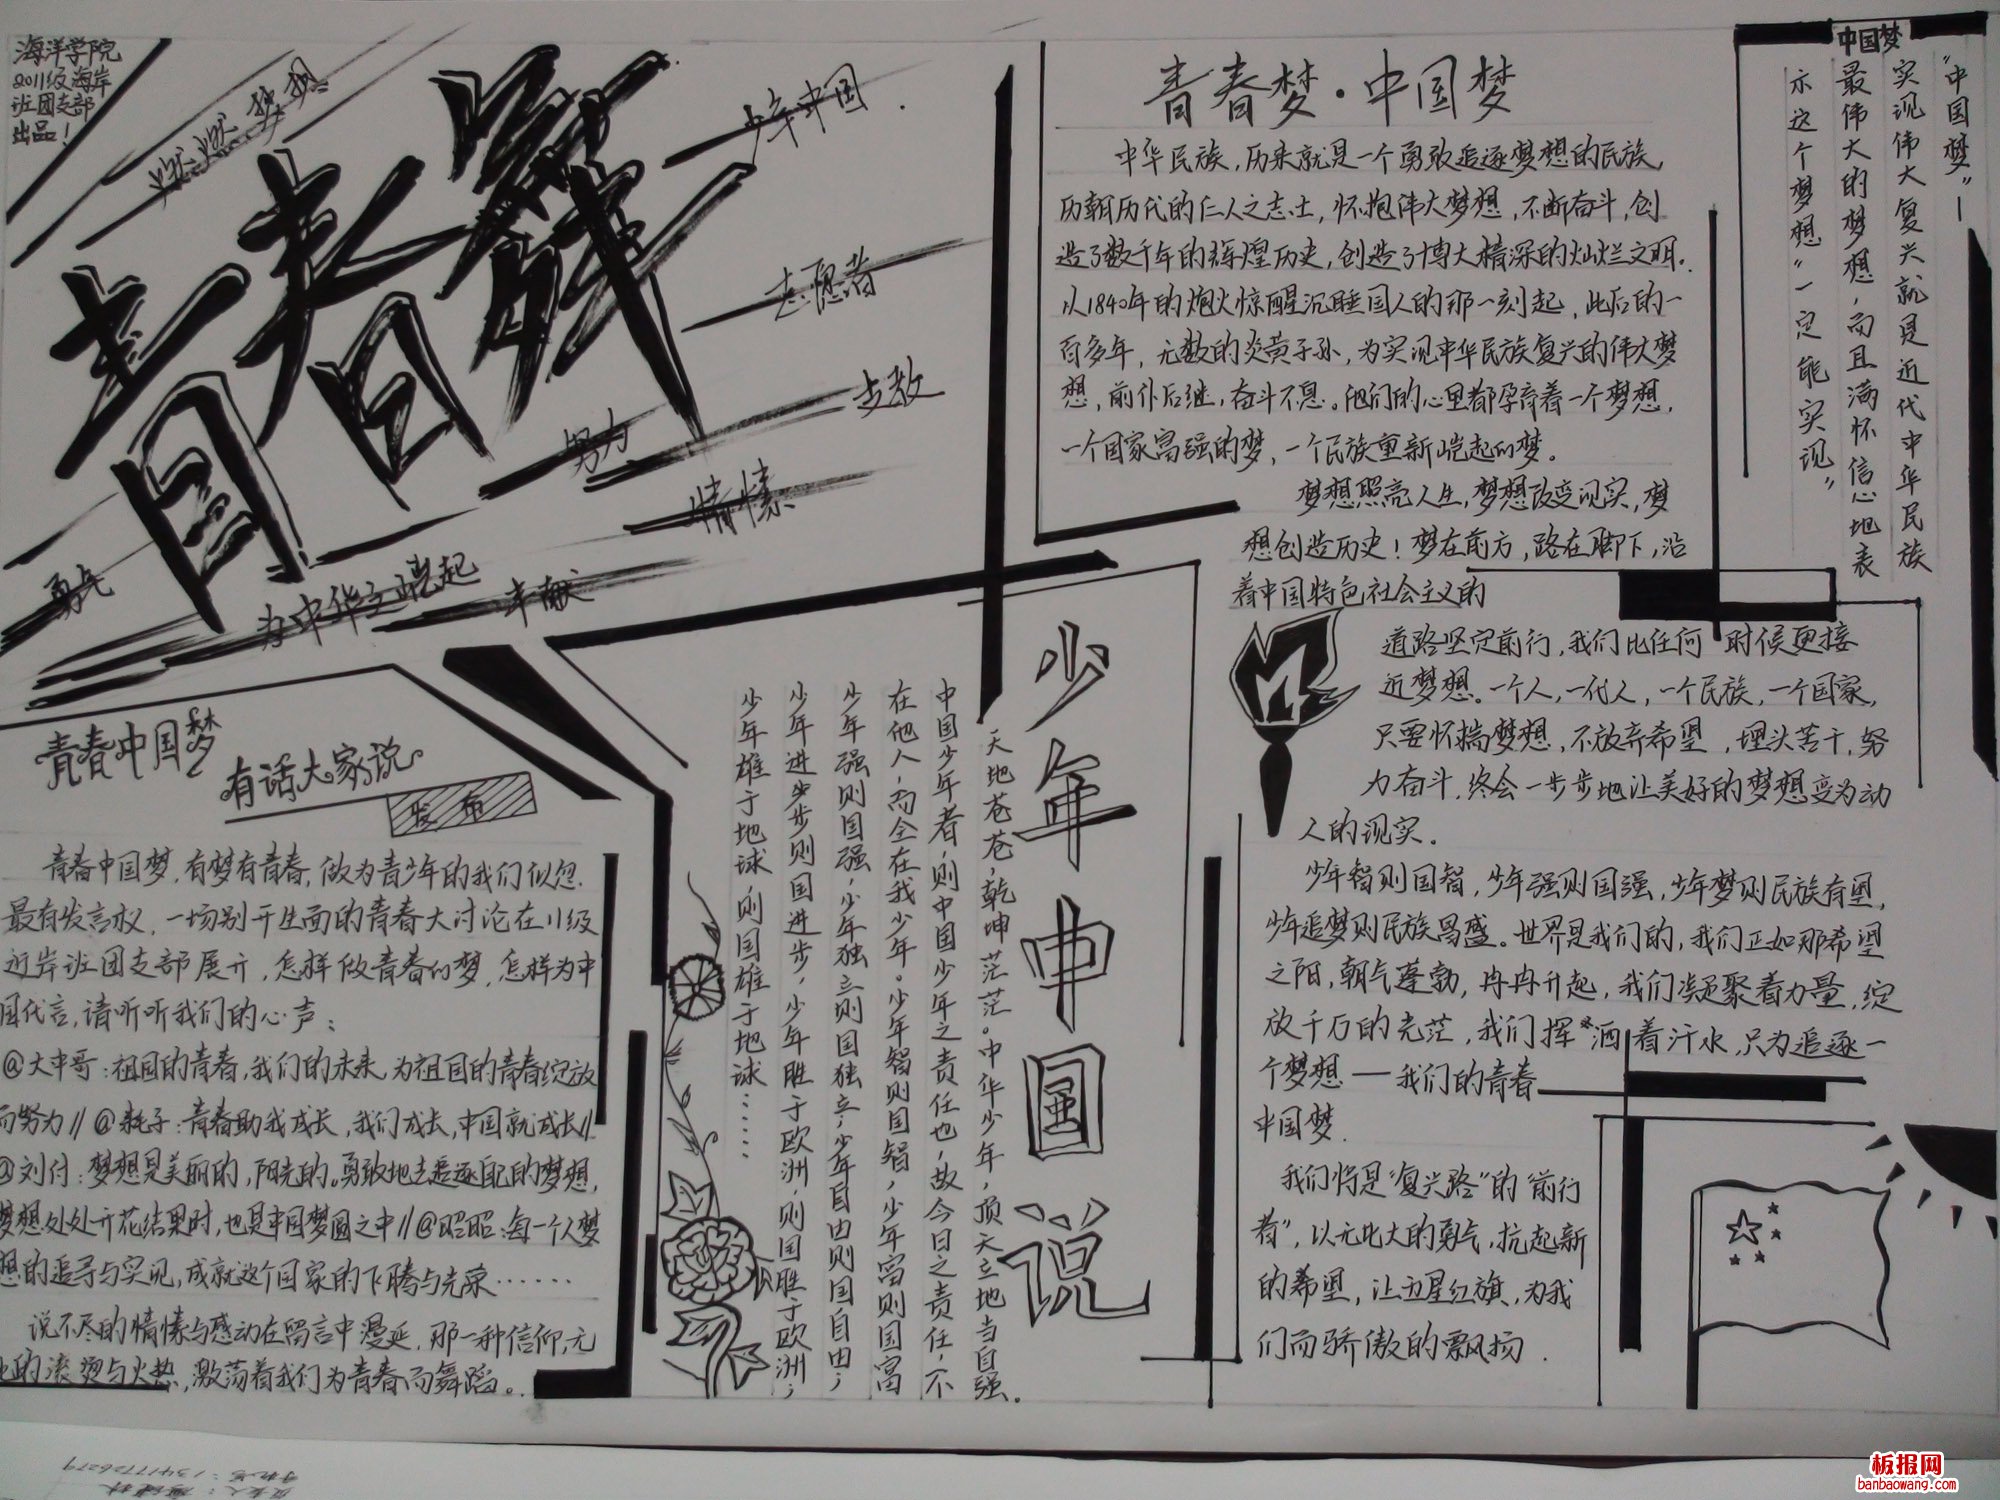 海洋学院
2011级海岸
班团支部
出品！
燃燃梦想
青春舞
少年中国
志愿者
步教
努力
情愫
奉献
为中华之崛起
青春中国梦
有话大家说
发布
青春中国梦，有梦有青春，做为青少年的我们似忽
最有发言权，一场别开生面的青春大讨论在11级
近岸班团支部展开，怎样做青春的梦，怎样为中
国代言，请听听我们的心声：
@大中哥：祖国的青春，我们的未来，为祖国的青春绽放
而努力//@耗子：青春助我成长，我们成长，中国就成长//
@刘付：梦想是美丽的，阳光的。勇敢地去追逐自己的梦想，
梦想处处开花结果时，也是中国梦圆之中//@昭昭：每一个人梦
想的追寻与实现，成就这个国家的飞腾与光荣……
说不尽的情愫与感动在留言中漫延，那一种信仰，无
的滚烫与火热，激荡着我们为青春而舞蹈。
少年中国说
天地苍苍，乾坤茫茫。中华少年，顶天立地当自强。
中国少年者，则中国少年之责任也，故今日之责任，不
在他人，而全在我少年。少年智则国智，少年富则国富
少年强则国强，少年独立则国独立，少年自由则国自由；
少年进步则国进步，少年胜于欧洲，则国胜于欧洲；
少年雄于地球，则国雄于地球……
青春梦·中国梦
中华民族，历来就是一个勇敢追逐梦想的民族，
历朝历代的仁人之志士，怀抱伟大梦想，不断奋斗，创
造了数千年的辉煌历史，创造了博大精深的灿烂文明。
从1840年的炮火惊醒沉睡国人的那一刻起，此后的一
百多年，无数的炎黄子孙，为实现中华民族复兴的伟大梦
想，前仆后继，奋斗不息。他们的心里都孕育着一个梦想，
一个国家富强的梦，一个民族重新崛起的梦。
梦想照亮人生，梦想改变现实，梦
想创造历史！梦在前方，路在脚下，沿
着中国特色社会主义的
道路坚定前行，我们比任何时候更接
近梦想。一个人，一代人，一个民族，一个国家，
只要怀揣梦想，不放弃希望，埋头苦干，努
力奋斗，终会一步步地让美好的梦想变为动
人的现实。
少年智则国智，少年强则国强，少年梦则民族有望，
少年追梦则民族昌盛。世界是我们的，我们正如那希望
之阳，朝气蓬勃，冉冉升起，我们凝聚着力量，绽
放千万的光茫，我们挥洒着汗水，只为追逐一
个梦想——我们的青春
中国梦．
我们将是“复兴路”的“前行
者”，以无比大的勇气，抗起新
的希望，让五星红旗，为我
们而骄傲的飘扬．
中国梦
“中国梦”—
实现伟大复兴就是近代中华民族
最伟大的梦想，而且满怀信心地表
示这个梦想“一定能实现”
手机号：13417726279
板报网
banbaowang.com